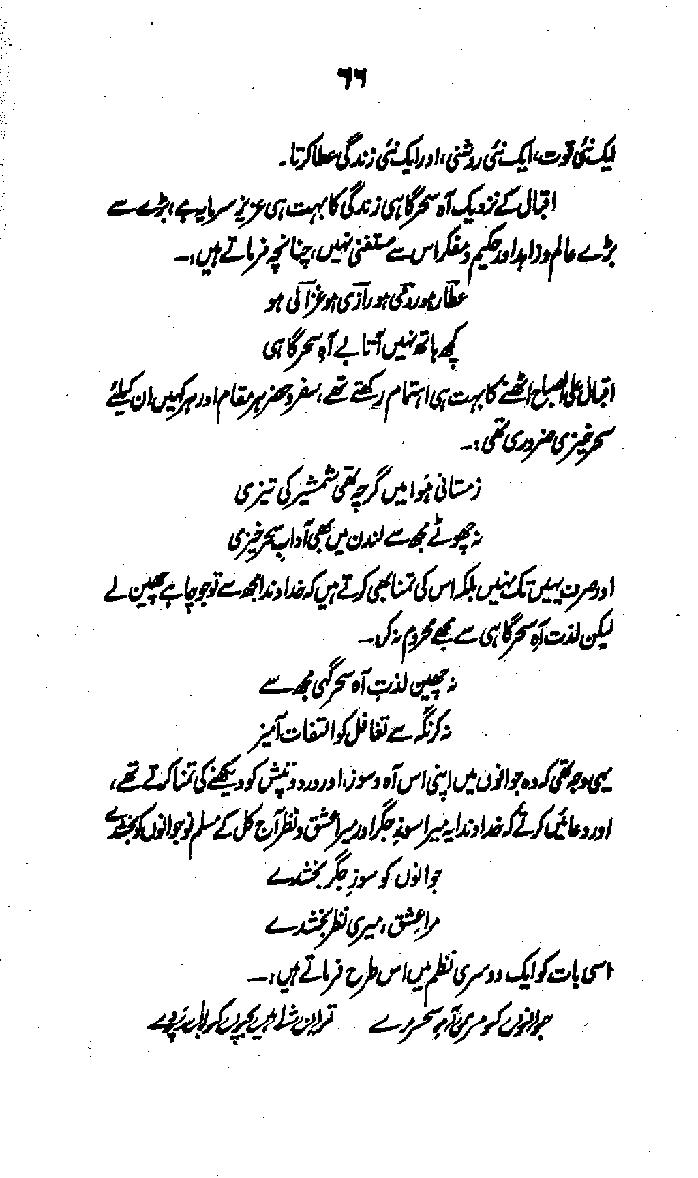 ۶۶
ایک نئی قوت، ایک نئی روشنی، اور ایک نئی زندگی عطا کرتا۔
اقبال کے نزدیک آہ سحر گاہی زندگی کا بہت ہی عزیز سرمایہ ہے، بڑے سے
بڑے عالم و زاہد اور حکیم و مفکر اس سے مستغنی نہیں، چنانچہ فرماتے ہیں:۔
عطار ہو رومی ہو رازی ہو غزالی ہو
کچھ ہاتھ نہیں آتا بے آہِ سحر گاہی
اقبال علی الصباح اٹھنے کا بہت ہی اہتمام رکھتے تھے، سفر و حضر ہر مقام اور ہر کہیں ان کیلئے
سحر خیزی ضروری تھی:۔
زمستانی ہوا میں گرچہ تھی شمشیر کی تیزی
نہ چھوٹے مجھ سے لندن میں بھی آدابِ سحر خیزی
اور صرف یہیں تک نہیں بلکہ اس کی تمنا بھی کرتے ہیں کہ خداوندا مجھ سے تو جو چاہے چھین لے
لیکن لذت آہِ سحر گاہی سے مجھے محروم نہ کر۔
نہ چھین لذتِ آہ سحر گہی مجھ سے
نہ کر نگہ سے تغافل کو التفات آمیز
یہی وجہ تھی کہ وہ جوانوں میں اپنی اس آہ و سوز، اور درد و تپش کو دیکھنے کی تمنا کرتے تھے،
اور دعائیں کرتے کہ خداوندا یہ میرا سوزِ جگر اور میرا عشق و نظر آج کل کے مسلم نوجوانوں کو بخشدے
جوانوں کو سوزِ جگر بخشدے
مرا عشق، میری نظر بخشدے
اسی بات کو ایک دوسری نظم میں اس طرح فرماتے ہیں:۔
جوانوں کو مری آہِ سحر دے تو ان شاہیں بچوں کو بال و پر دے